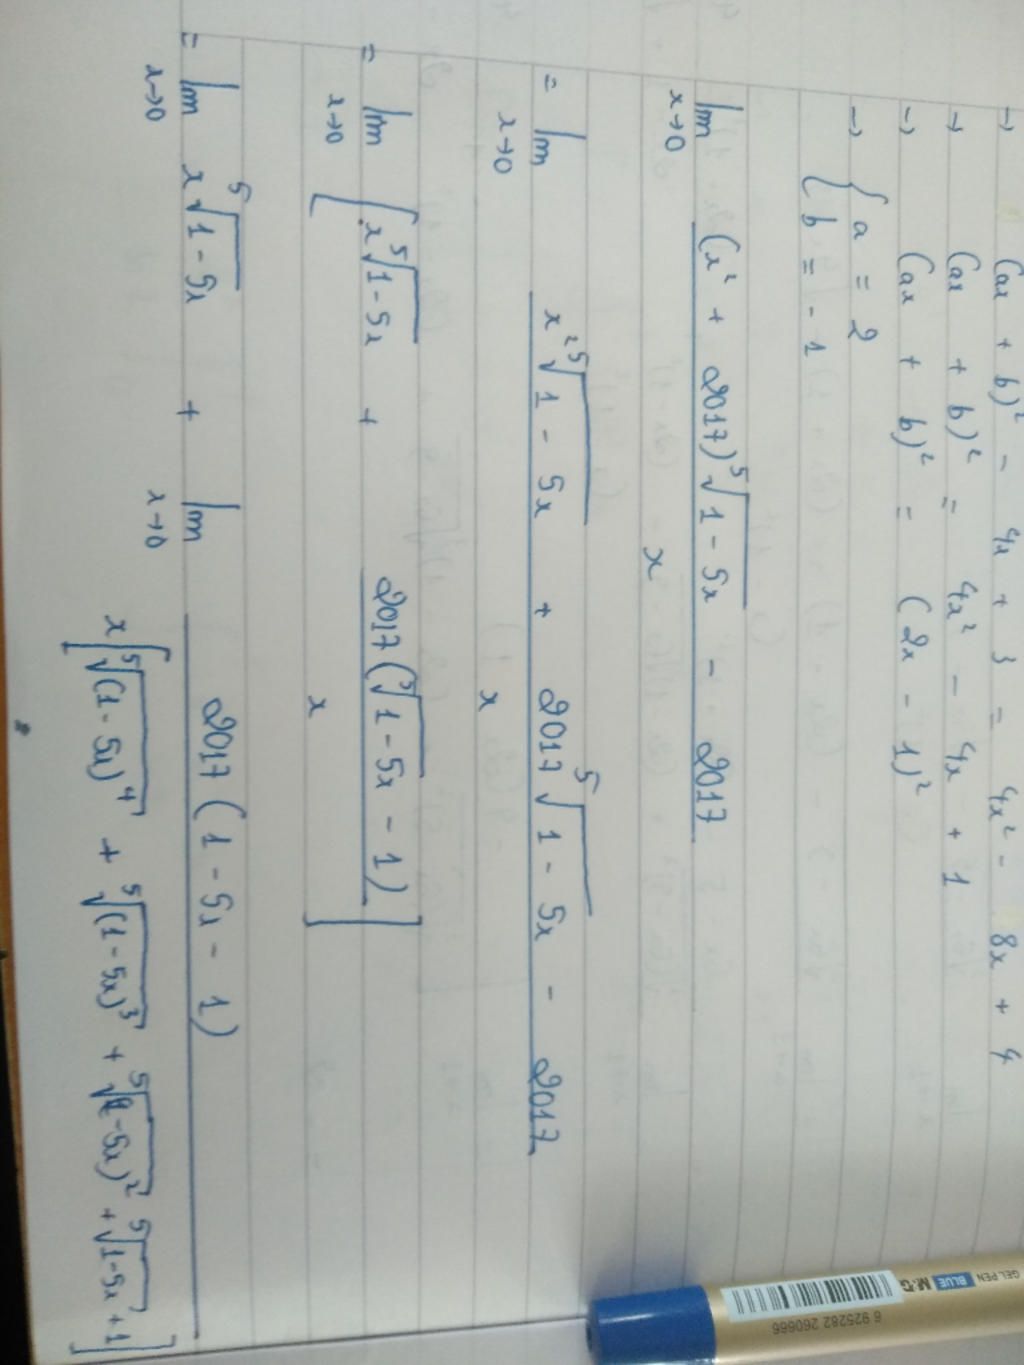 → (ax + b)² - 4x + 3 = 4x² - 8x + 4
→ (ax + b)² = 4x² - 4x + 1
→ (ax + b)² = (2x - 1)²
→ { a = 2
{ b = - 1
lim x→0 (x² + 2017) ⁵√(1 - 5x) - 2017 / x
= lim x→0 x² ⁵√(1 - 5x) + 2017 ⁵√(1 - 5x) - 2017 / x
= lim x→0 [ x ⁵√(1 - 5x) + 2017 (⁵√(1 - 5x) - 1) / x ]
= lim x→0 x ⁵√(1 - 5x) + lim x→0 2017 (1 - 5x - 1) / x [ ⁵√(1 - 5x)⁴ + ⁵√(1 - 5x)³ + ⁵√(1 - 5x)² + ⁵√(1 - 5x) + 1 ]
GEL PEN
BLUE M&G
6 925282 260666